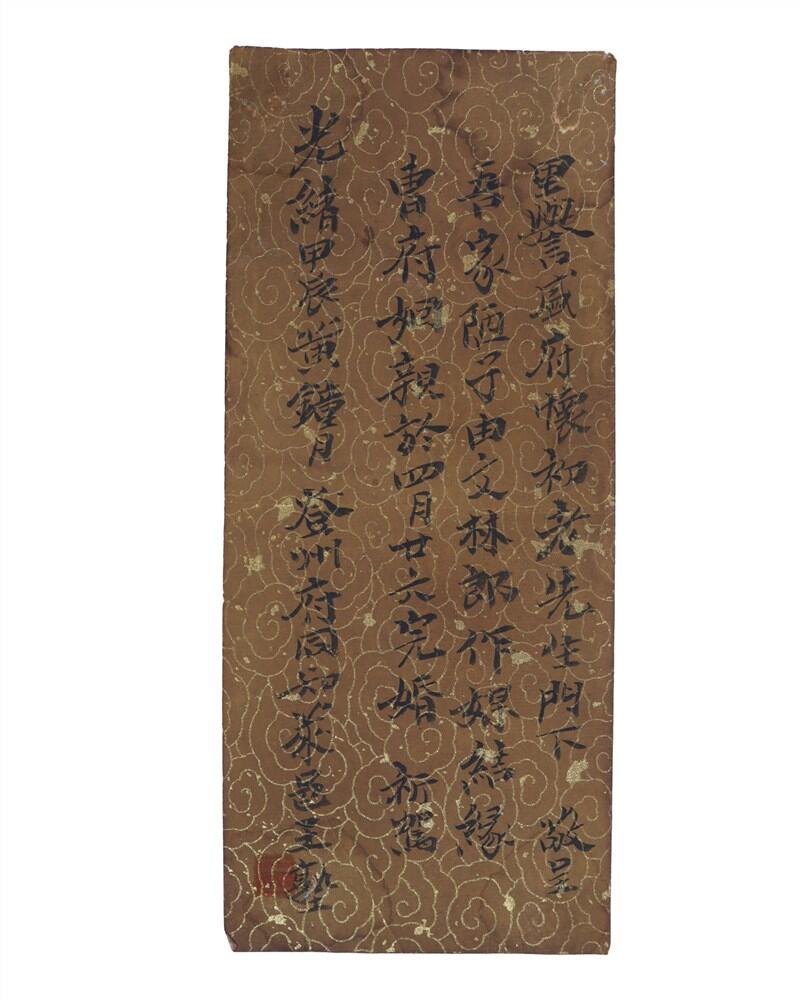 里譽盛府懷初老先生門下 敬呈
吾家陋子由文林郎作媒結緣
曹府姻親於四月廿六完婚 祈
光緒甲辰黃鐘月 登州府同知萊邑王塾